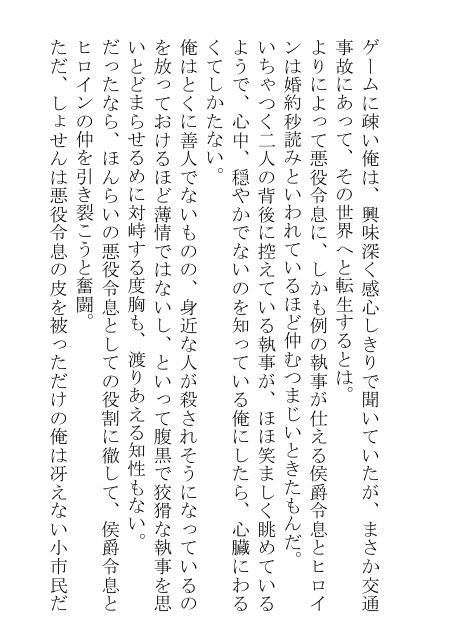 ゲームに疎い俺は、興味深く感心しきりで聞いていたが、まさか交通
事故にあって、その世界へと転生するとは。
よりによって悪役令息に、しかも例の執事が仕える侯爵令息とヒロイ
ンは婚約秒読みといわれているほど仲むつまじいときたもんだ。
いちゃつく二人の背後に控えている執事が、ほほ笑ましく眺めている
ようで、心中、穏やかでないのを知っている俺にしたら、心臓にわる
くてしかたない。
俺はとくに善人でないものの、身近な人が殺されそうになっているの
を放っておけるほど薄情ではないし、といって腹黒で狡猾な執事を思
いとどまらせるために対峙する度胸も、渡りあえる知性もない。
だったなら、ほんらいの悪役令息としての役割に徹して、侯爵令息と
ヒロインの仲を引き裂こうと奮闘。
ただ、しょせんは悪役令息の皮を被っただけの俺は冴えない小市民だ